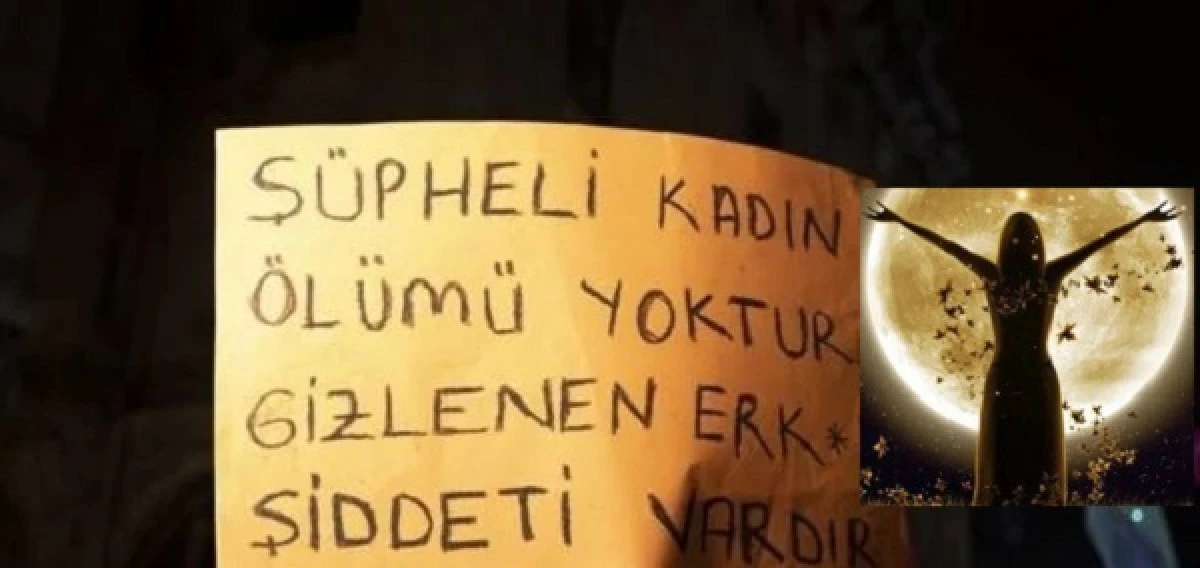 ŞÜPHELİ KADIN
ÖLÜMÜ YOKTUR
GİZLENEN ERK*
ŞİDDETİ VARDIR